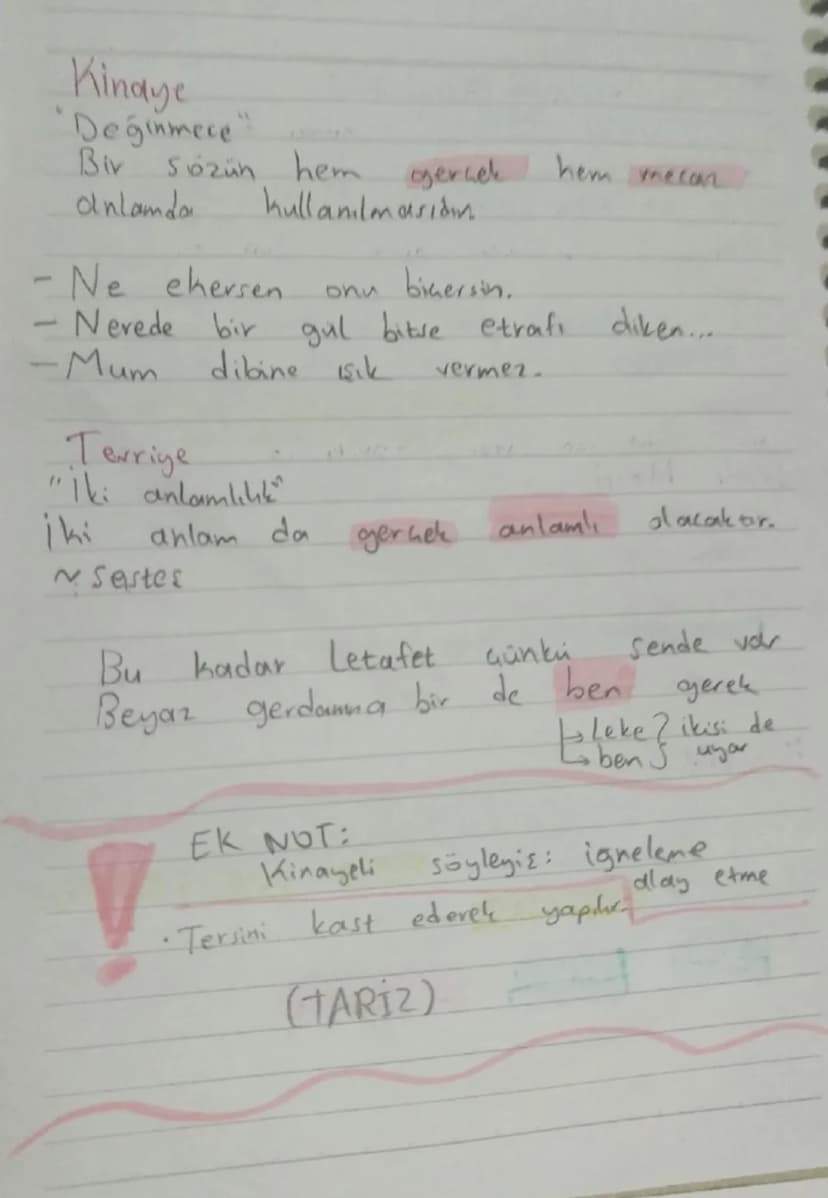 Kinaye
"Değinmece"
Bir sözün hem gerçek hem mecaz
anlamda kullanılmasıdır.
- Ne ekersen onu biçersin.
- Nerede bir gül bitse etrafı diken...
- Mum dibine ışık vermez.
Tevriye
"İki anlamlılık"
İki anlam da gerçek anlamlı olacaktır.
~ Sesteş
Bu kadar letafet çünkü sende var
Beyaz gerdanına bir de ben gerek
↳ leke } ikisi de
↳ ben } uyar
! EK NOT:
Kinayeli söyleyiş: iğneleme
alay etme
• Tersini kast ederek yapılır.
(TARİZ)